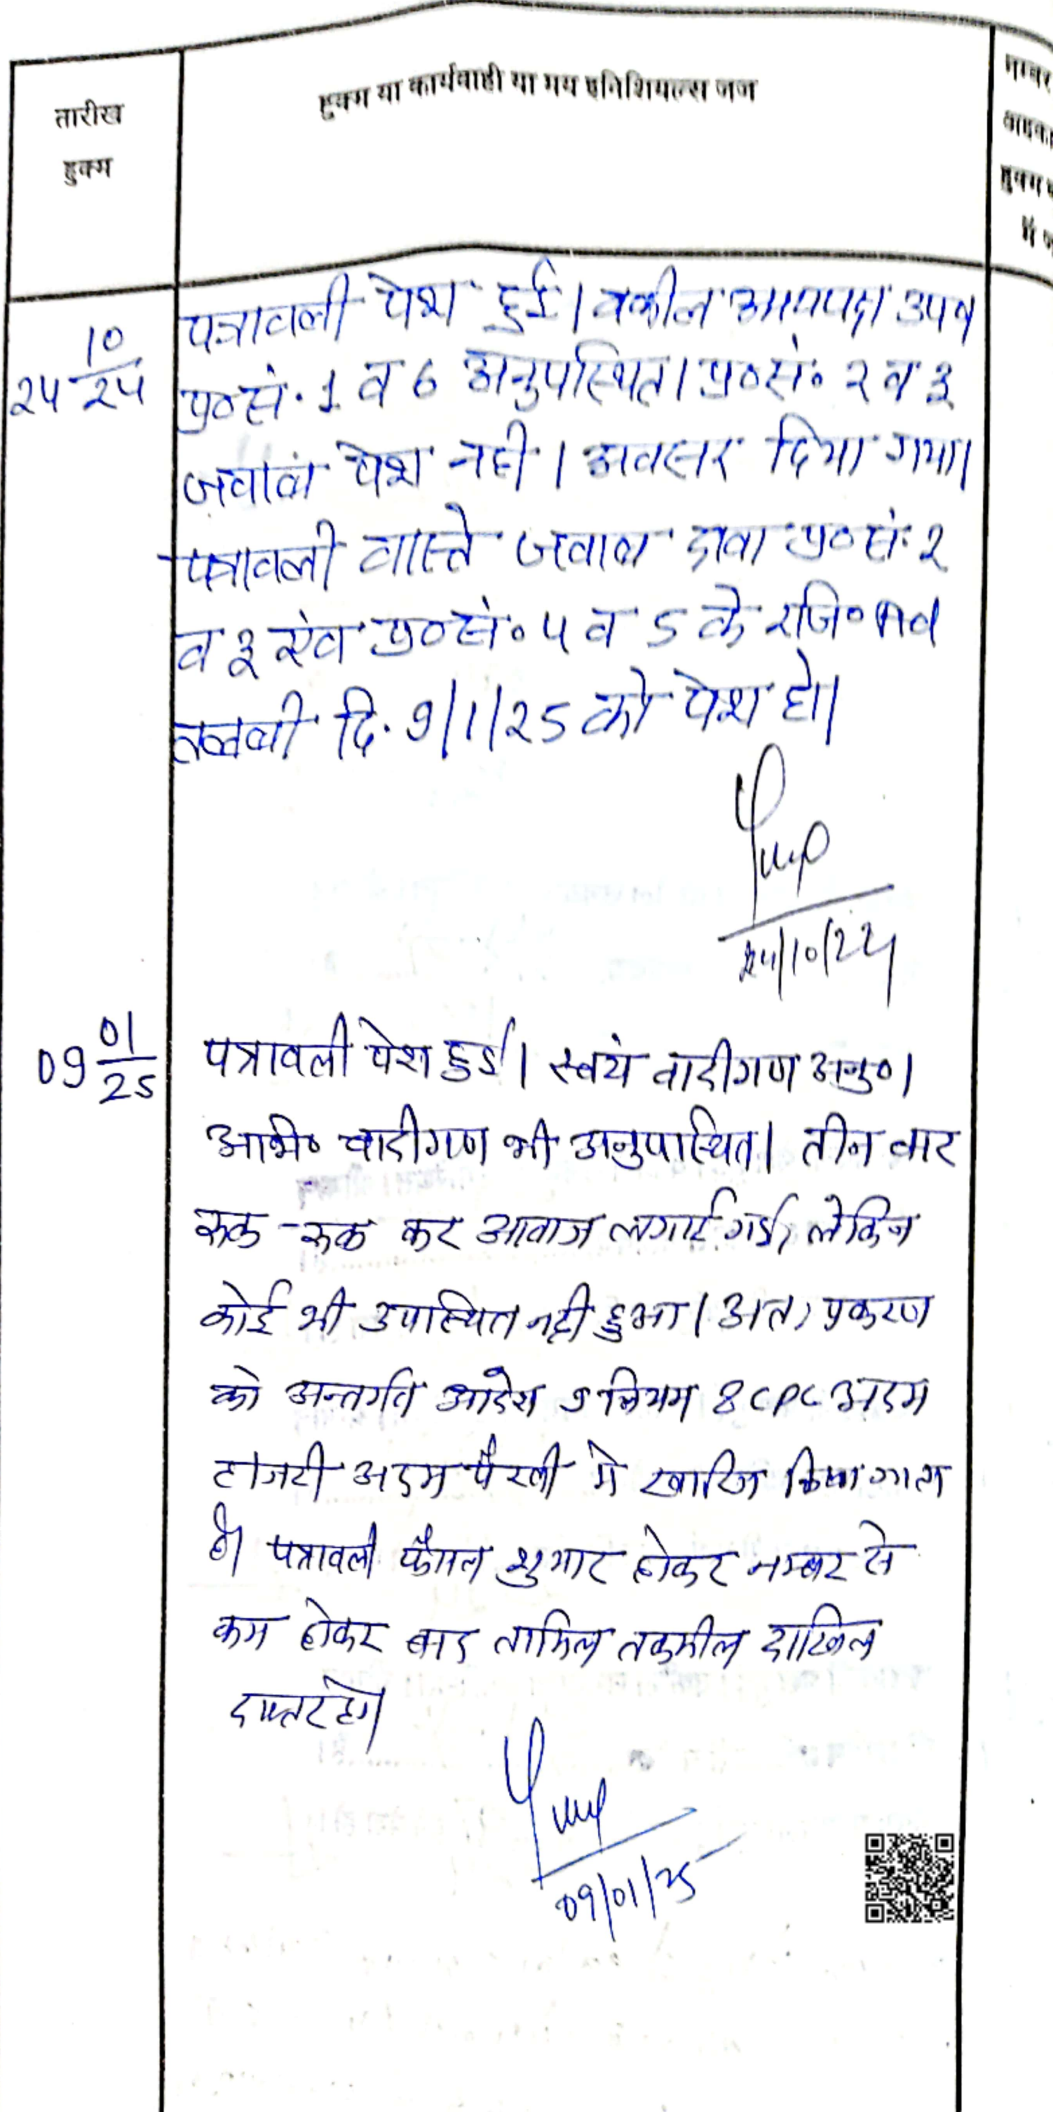 तारीख
हुक्म
हुक्म या कार्यवाही या मय इनिशियल्स जज
नम्बर
हुक्म
24 10/24
पत्रावली पेश हुई। वकील उप०
प्र०सं. 1 व 6 अनुपस्थित। प्र०सं० 2 व 3
जवाब पेश नही। अवसर दिया गया।
पत्रावली वास्ते जवाब दावा प्र०सं. 2
व 3 एंव प्र०सं० 4 व 5 के रजि०
तलबी दि. 9/1/25 को पेश हो।
24/10/24
09 01/25
पत्रावली पेश हुई। स्वयं वादीगण अनु०।
अभि० वादीगण भी अनुपस्थित। तीन बार
रूक-रूक कर आवाज लगाई गई, लेकिन
कोई भी उपस्थित नही हुआ। अतः प्रकरण
को अन्तर्गत आदेश 9 नियम 8 CPC अदम
हाजरी अदम पैरवी मे खारिज किया जाता
है। पत्रावली फैसल शुमार होकर नम्बर से
कम होकर बाद तामिल तकमील दाखिल
दफ्तर हो।
09/01/25